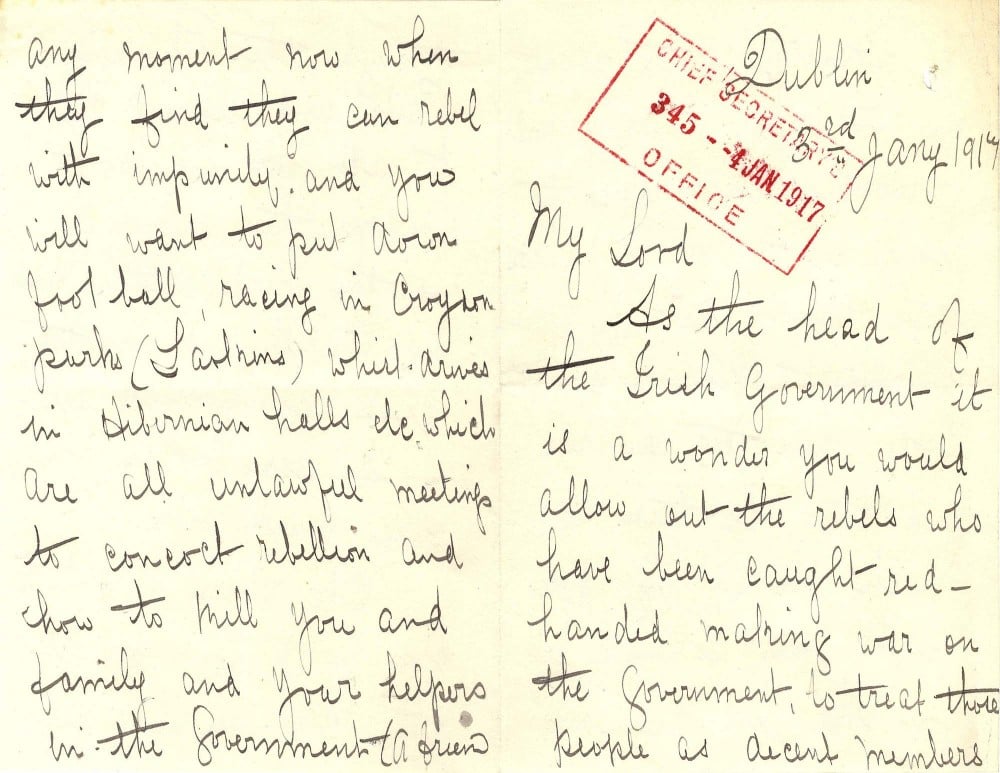 Dublin
3rd Jany 1917
CHIEF SECRETARY'S
345 - -4 JAN.1917
OFFICE
My Lord
As the head of
the Irish Government it
is a wonder you would
allow out the rebels who
have been caught red-
handed making war on
the Government, to treat those
people as decent members
any moment now when
they find they can rebel
with impunity. and you
will want to put down
foot ball, racing in Croydon
parks (Larkins) whist-drives
in Hibernian halls etc, which
are all unlawful meetings
to concoct rebellion and
how to kill you and
family and your helpers
in the Government (A frien